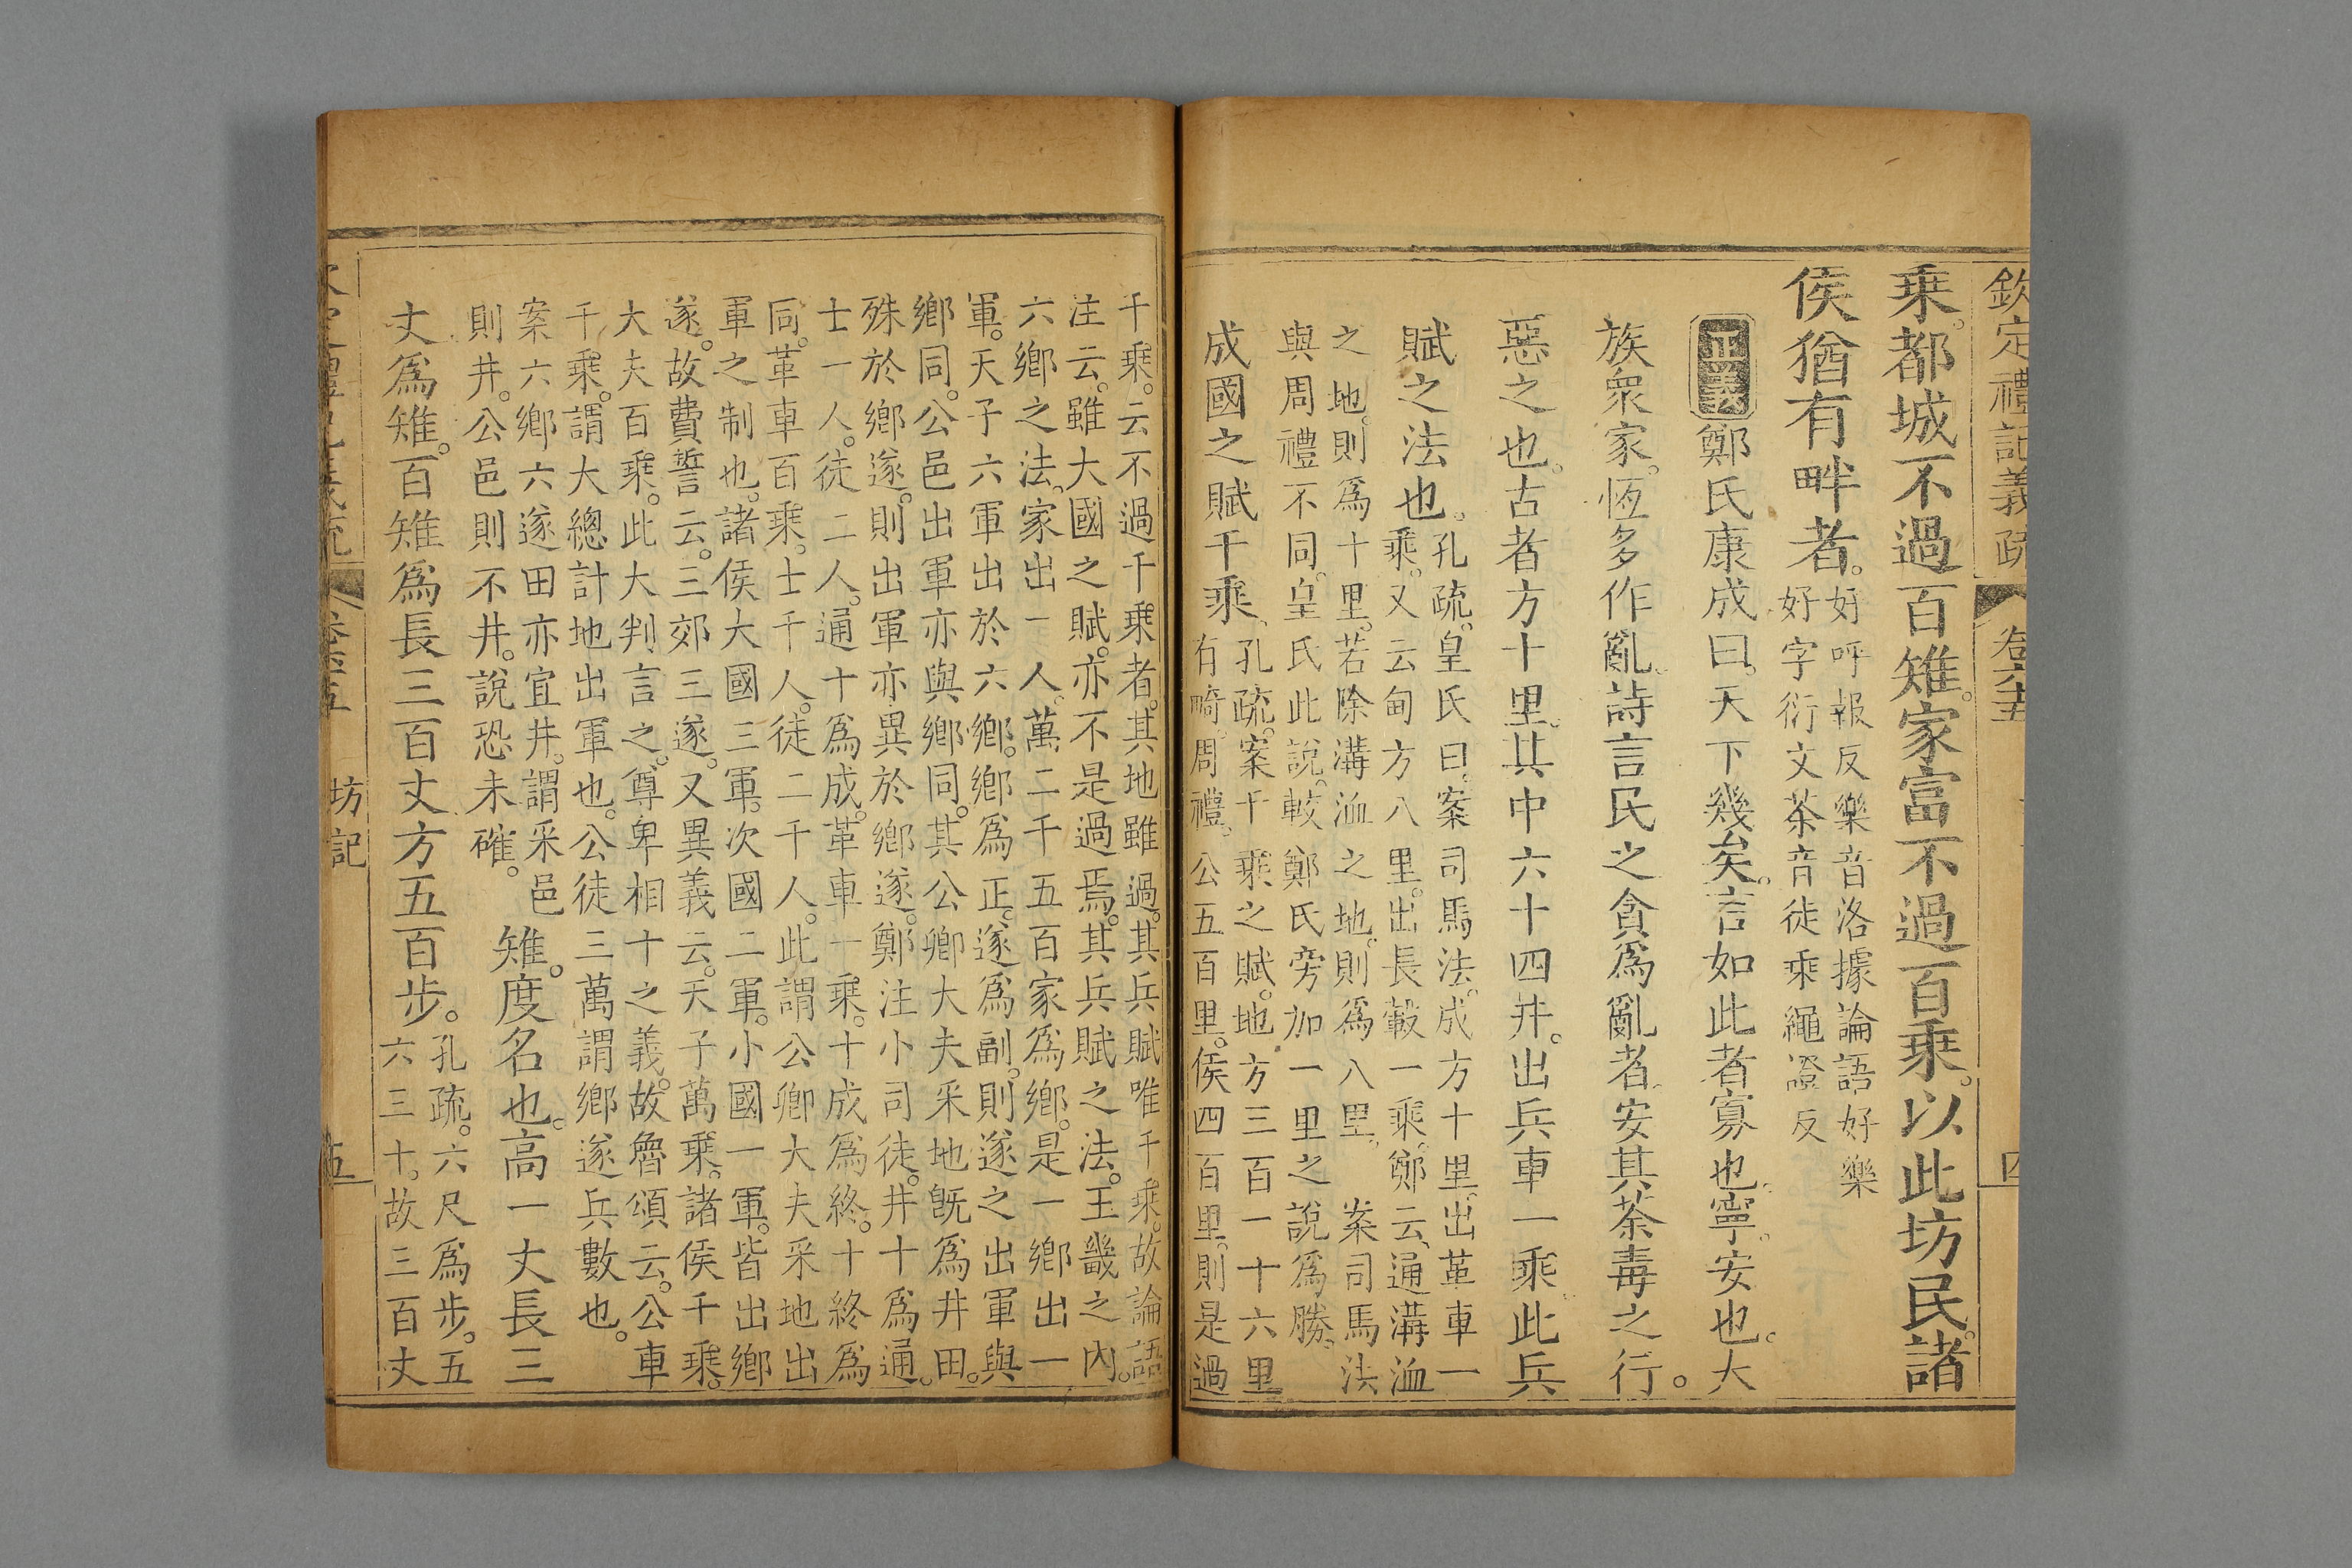 欽定禮記義疏 卷六十五 四
乗。都城不過百雉。家富不過百乗。以此坊民。諸
侯猶有畔者。好呼報反樂音洛據論語好樂
好字衍文荼音徒乘繩證反
正義 鄭氏康成曰。天下幾矣。言如此者寡也。寧。安也。大
族衆家。恆多作亂。詩言民之貪爲亂者。安其荼毒之行。
惡之也。古者方十里。其中六十四井。出兵車一乘。此兵
賦之法也。孔疏。皇氏曰。案司馬法。成方十里。出革車一
乘。又云甸方八里。出長轂一乘。鄭云。通溝洫
之地。則爲十里。若除溝洫之地。則爲八里。 案司馬法
與周禮不同。皇氏此說。較鄭氏旁加一里之說爲勝。
成國之賦千乘。孔疏。案千乘之賦。地方三百一十六里
有畸。周禮。公五百里。侯四百里。則是過
千乘。云不過千乘者。其地雖過。其兵賦唯千乘。故論語
注云。雖大國之賦。亦不是過焉。其兵賦之法。王畿之內。
六鄉之法。家出一人。萬二千五百家爲鄉。是一鄉出一
軍。天子六軍出於六鄉。鄉爲正。遂爲副。則遂之出軍與
鄉同。公邑出軍亦與鄉同。其公卿大夫采地旣爲井田。
殊於鄉遂。則出軍亦異於鄉遂。鄭注小司徒。井十爲通。
士一人。徒二人。通十爲成。革車一乘。十成爲終。十終爲
同。革車百乘。士千人。徒二千人。此謂公卿大夫采地出
軍之制也。諸侯大國三軍。次國二軍。小國一軍。皆出鄉
遂。故費誓云。三郊三遂。又異義云。天子萬乘。諸侯千乘。
大夫百乘。此大判言之。尊卑相十之義。故魯頌云。公車
千乘。謂大總計地出軍也。公徒三萬謂鄉遂兵數也。
案六鄉六遂田亦宜井。謂采邑
則井。公邑則不井。說恐未確。 雉。度名也。高一丈長三
丈爲雉。百雉爲長三百丈方五百步。孔疏。六尺爲步。五
六三十。故三百丈
坊記 五